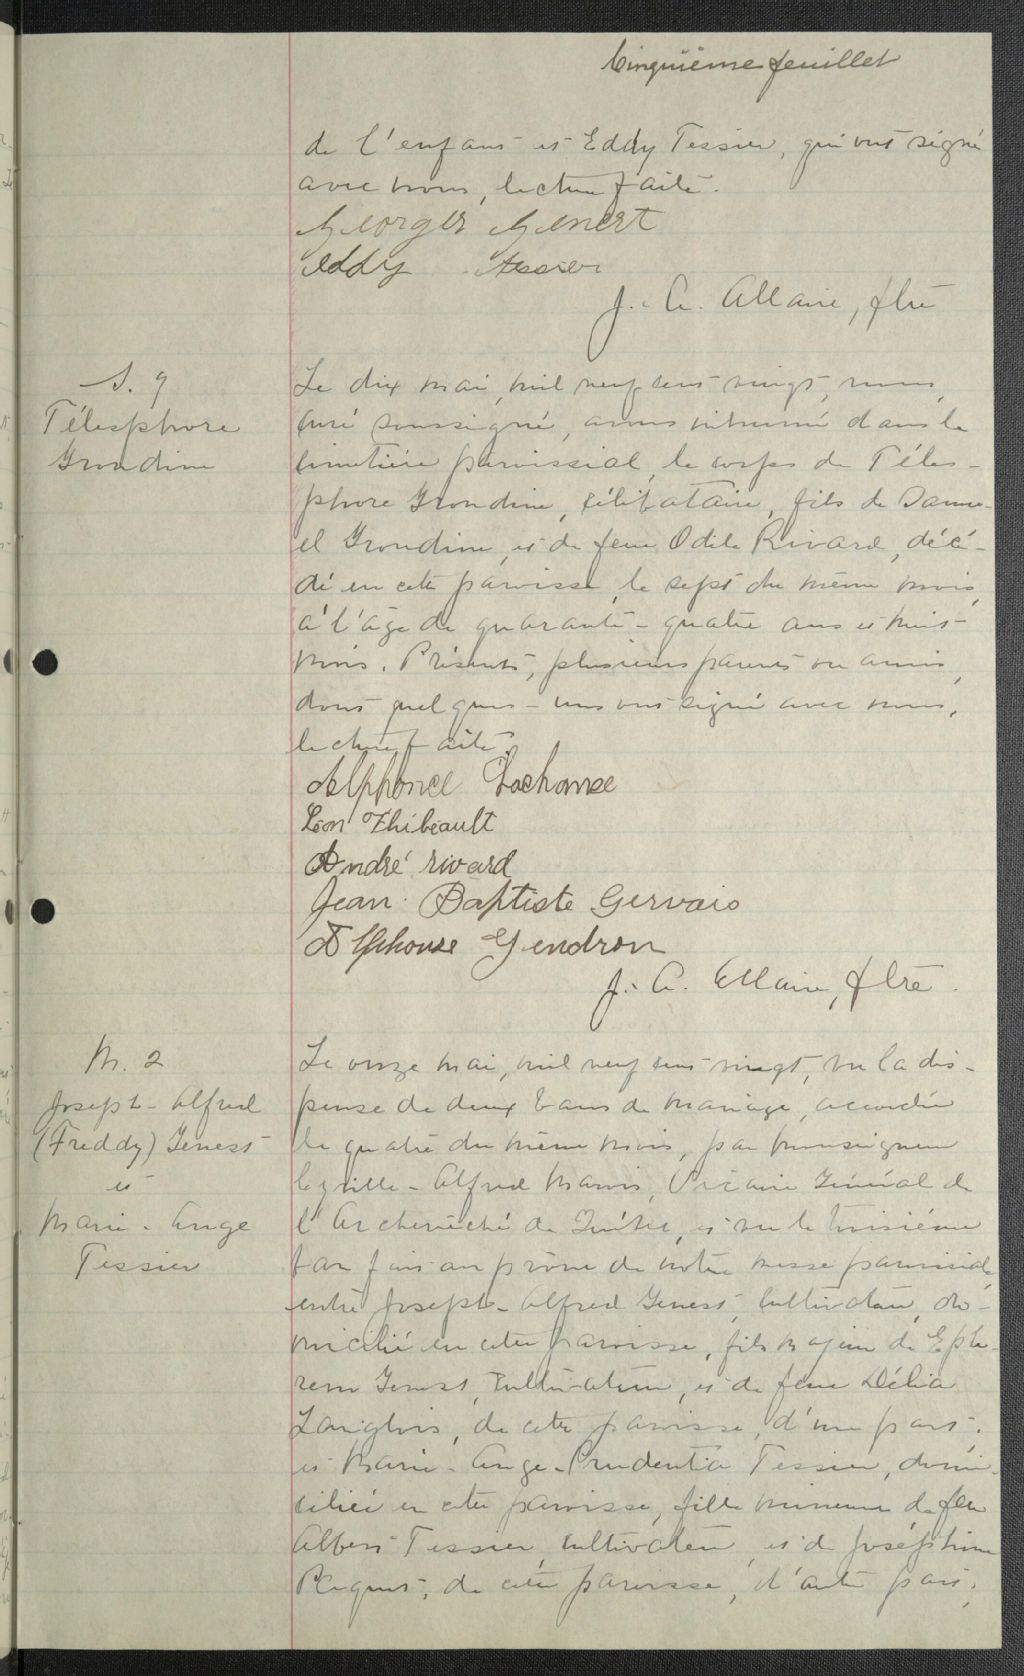 Cinquième feuillet
de l'enfant et Eddy Tessier, qui ont signé
avec nous, lecture faite.
Georges Genest
Eddy Tessier
J. A. Allaire, ptre
S. 9
Télesphore
Grondine
Le dix mai, mil neuf cent vingt, nous,
curé soussigné, avons inhumé dans le
cimetière paroissial, le corps de Téles-
phore Grondine, célibataire, fils de Damu-
el Grondine, et de feue Odile Rivard, décé-
dé en cette paroisse, le sept du même mois,
à l'âge de quarante-quatre ans et huit
mois. Présents, plusieurs parents ou amis,
dont quelques-uns ont signé avec nous,
lecture faite.
Alphonse Lachance
Léon Thibeault
André rivard
Jean Baptiste Gervais
Alphonse Gendron
J. A. Allaire, ptre.
M. 2
Joseph-Alfred
(Freddy) Genest
et
Marie-Ange
Tessier
Le onze mai, mil neuf cent vingt, vu la dis-
pense de deux bans de mariage, accordée
le quatre du même mois, par Monseigneur
Cyrille-Alfred Marois, Vicaire Général de
l'Archevêché de Québec, et vu le troisième
ban fait au prône de notre messe paroissiale,
entre Joseph-Alfred Genest, cultivateur, do-
micilié en cette paroisse, fils majeur de Eph-
rem Genest, cultivateur, et de feue Délia
Langlois, de cette paroisse, d'une part;
et Marie-Ange-Prudentia Tessier, domi-
ciliée en cette paroisse, fille mineure de feu
Albert Tessier, cultivateur, et de Joséphine
Paquet, de cette paroisse, d'autre part;